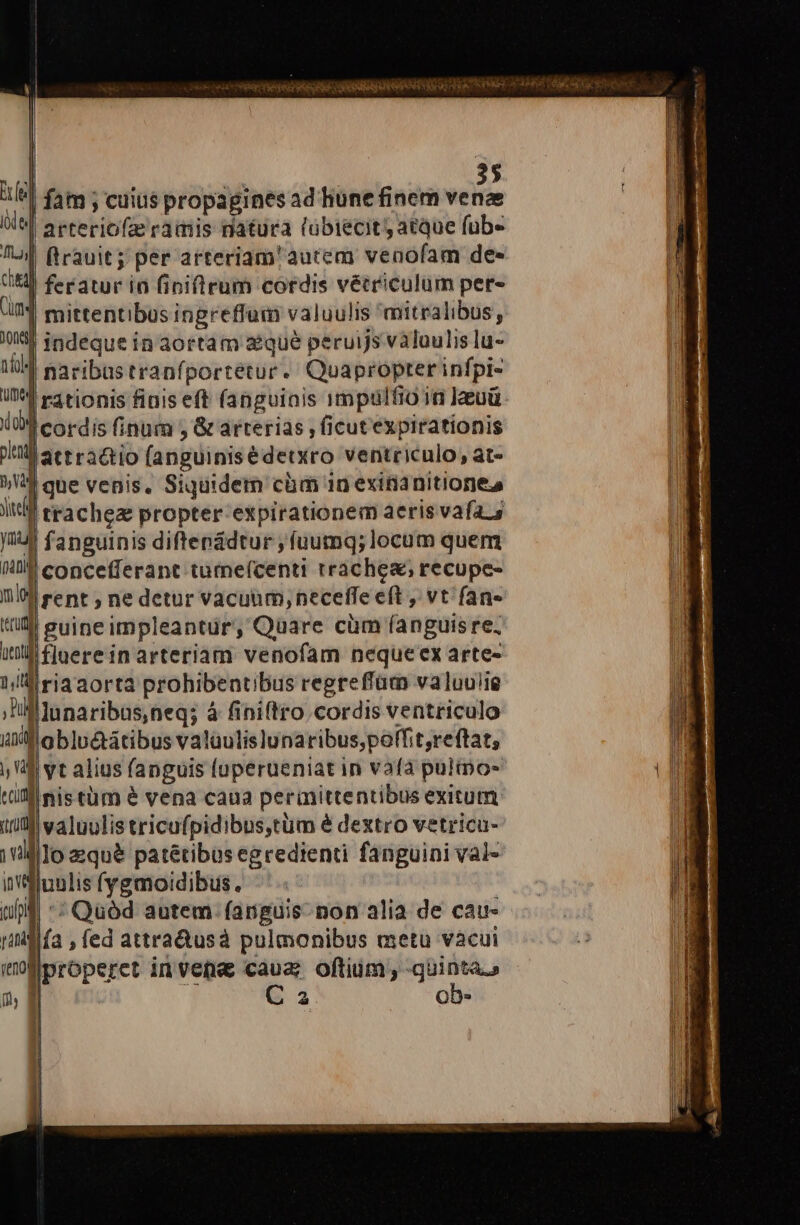 35
ſam; cuius propagines ad hunc finem venæ
arterioſæ ramis natura ſubiecit, atque ſub-
ſtrauit; per arteriam autem venoſam de-
feratur in ſiniſtrum cordis vẽtriculum per-
mittentibus ingreſſum valuulis mitralibus,
indeque in aortam æquè peruijs valuulis lu-
naribus tranſportetur. Quapropter inſpi-
rationis finis eſt ſanguinis impulſio in læuũ
cordis ſinum, & arterias, ſicut expirationis
attractio ſanguinis è detxro ventriculo, at-
que venis. Siquidem cùm in exinanitione
tracheæ propter expirationem aeris vaſa
ſanguinis diſtenẽdtur, ſuumq; locum quem
conceſſerant tumeſcenti tracheæ, recupe-
rent, ne detur vacuum, neceſſe eſt, vt ſan-
guine impleantur, Quare cùm ſanguis re-
fluere in arteriam venoſam neque ex arte-
ria aorta prohibentibus regreſſum valuulis
lunaribus, neq; á ſiniſtro cordis ventriculo
obluctãtibus valuulis lunaribus, poſſit, reſtat,
vt alius ſanguis ſuperueniat in vaſa pulmo-
nis tùm è vena caua permittentibus exitum
valuulis tricuſpidibus, tùm é dextro vẽtricu-
lo æquè patẽtibus egredienti ſanguini val-
uulis ſygmoidibus.
Quòd autem ſanguis non alia de cau-
ſa, ſed attractus à pulmonibus metu vacui
properet in venæ cauæ oſtium, quinta
C 2 ob-